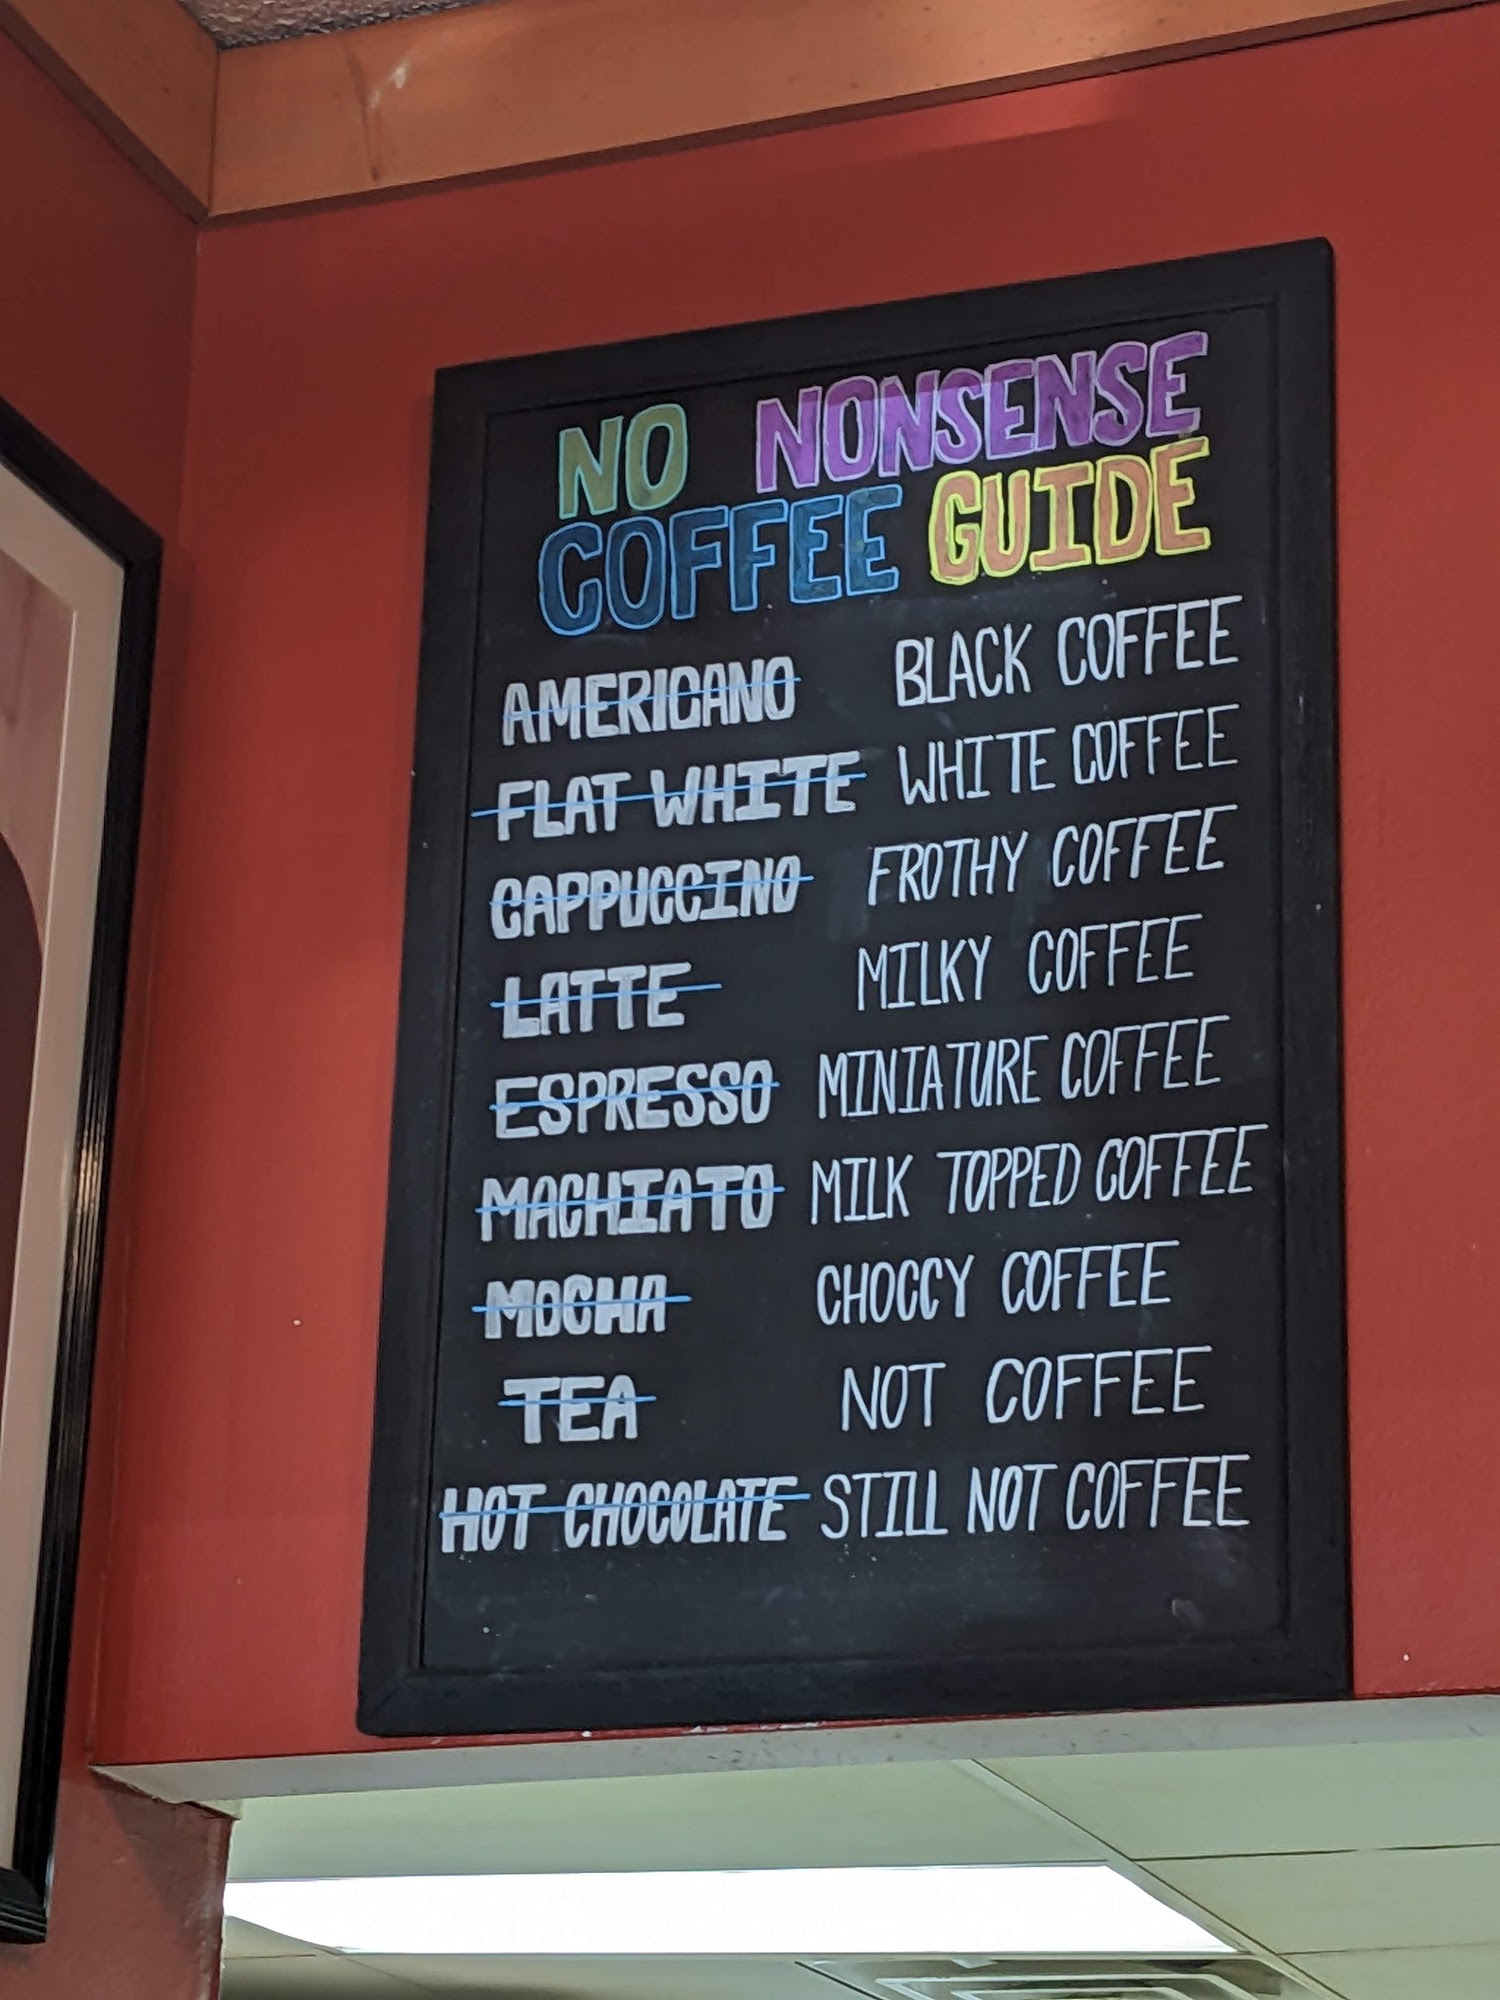 NO NONSENSE
COFFEE GUIDE
AMERICANO BLACK COFFEE
FLAT WHITE WHITE COFFEE
CAPPUCCINO FROTHY COFFEE
LATTE MILKY COFFEE
ESPRESSO MINIATURE COFFEE
MACHIATO MILK TOPPED COFFEE
MOCHA CHOCCY COFFEE
TEA NOT COFFEE
HOT CHOCOLATE STILL NOT COFFEE